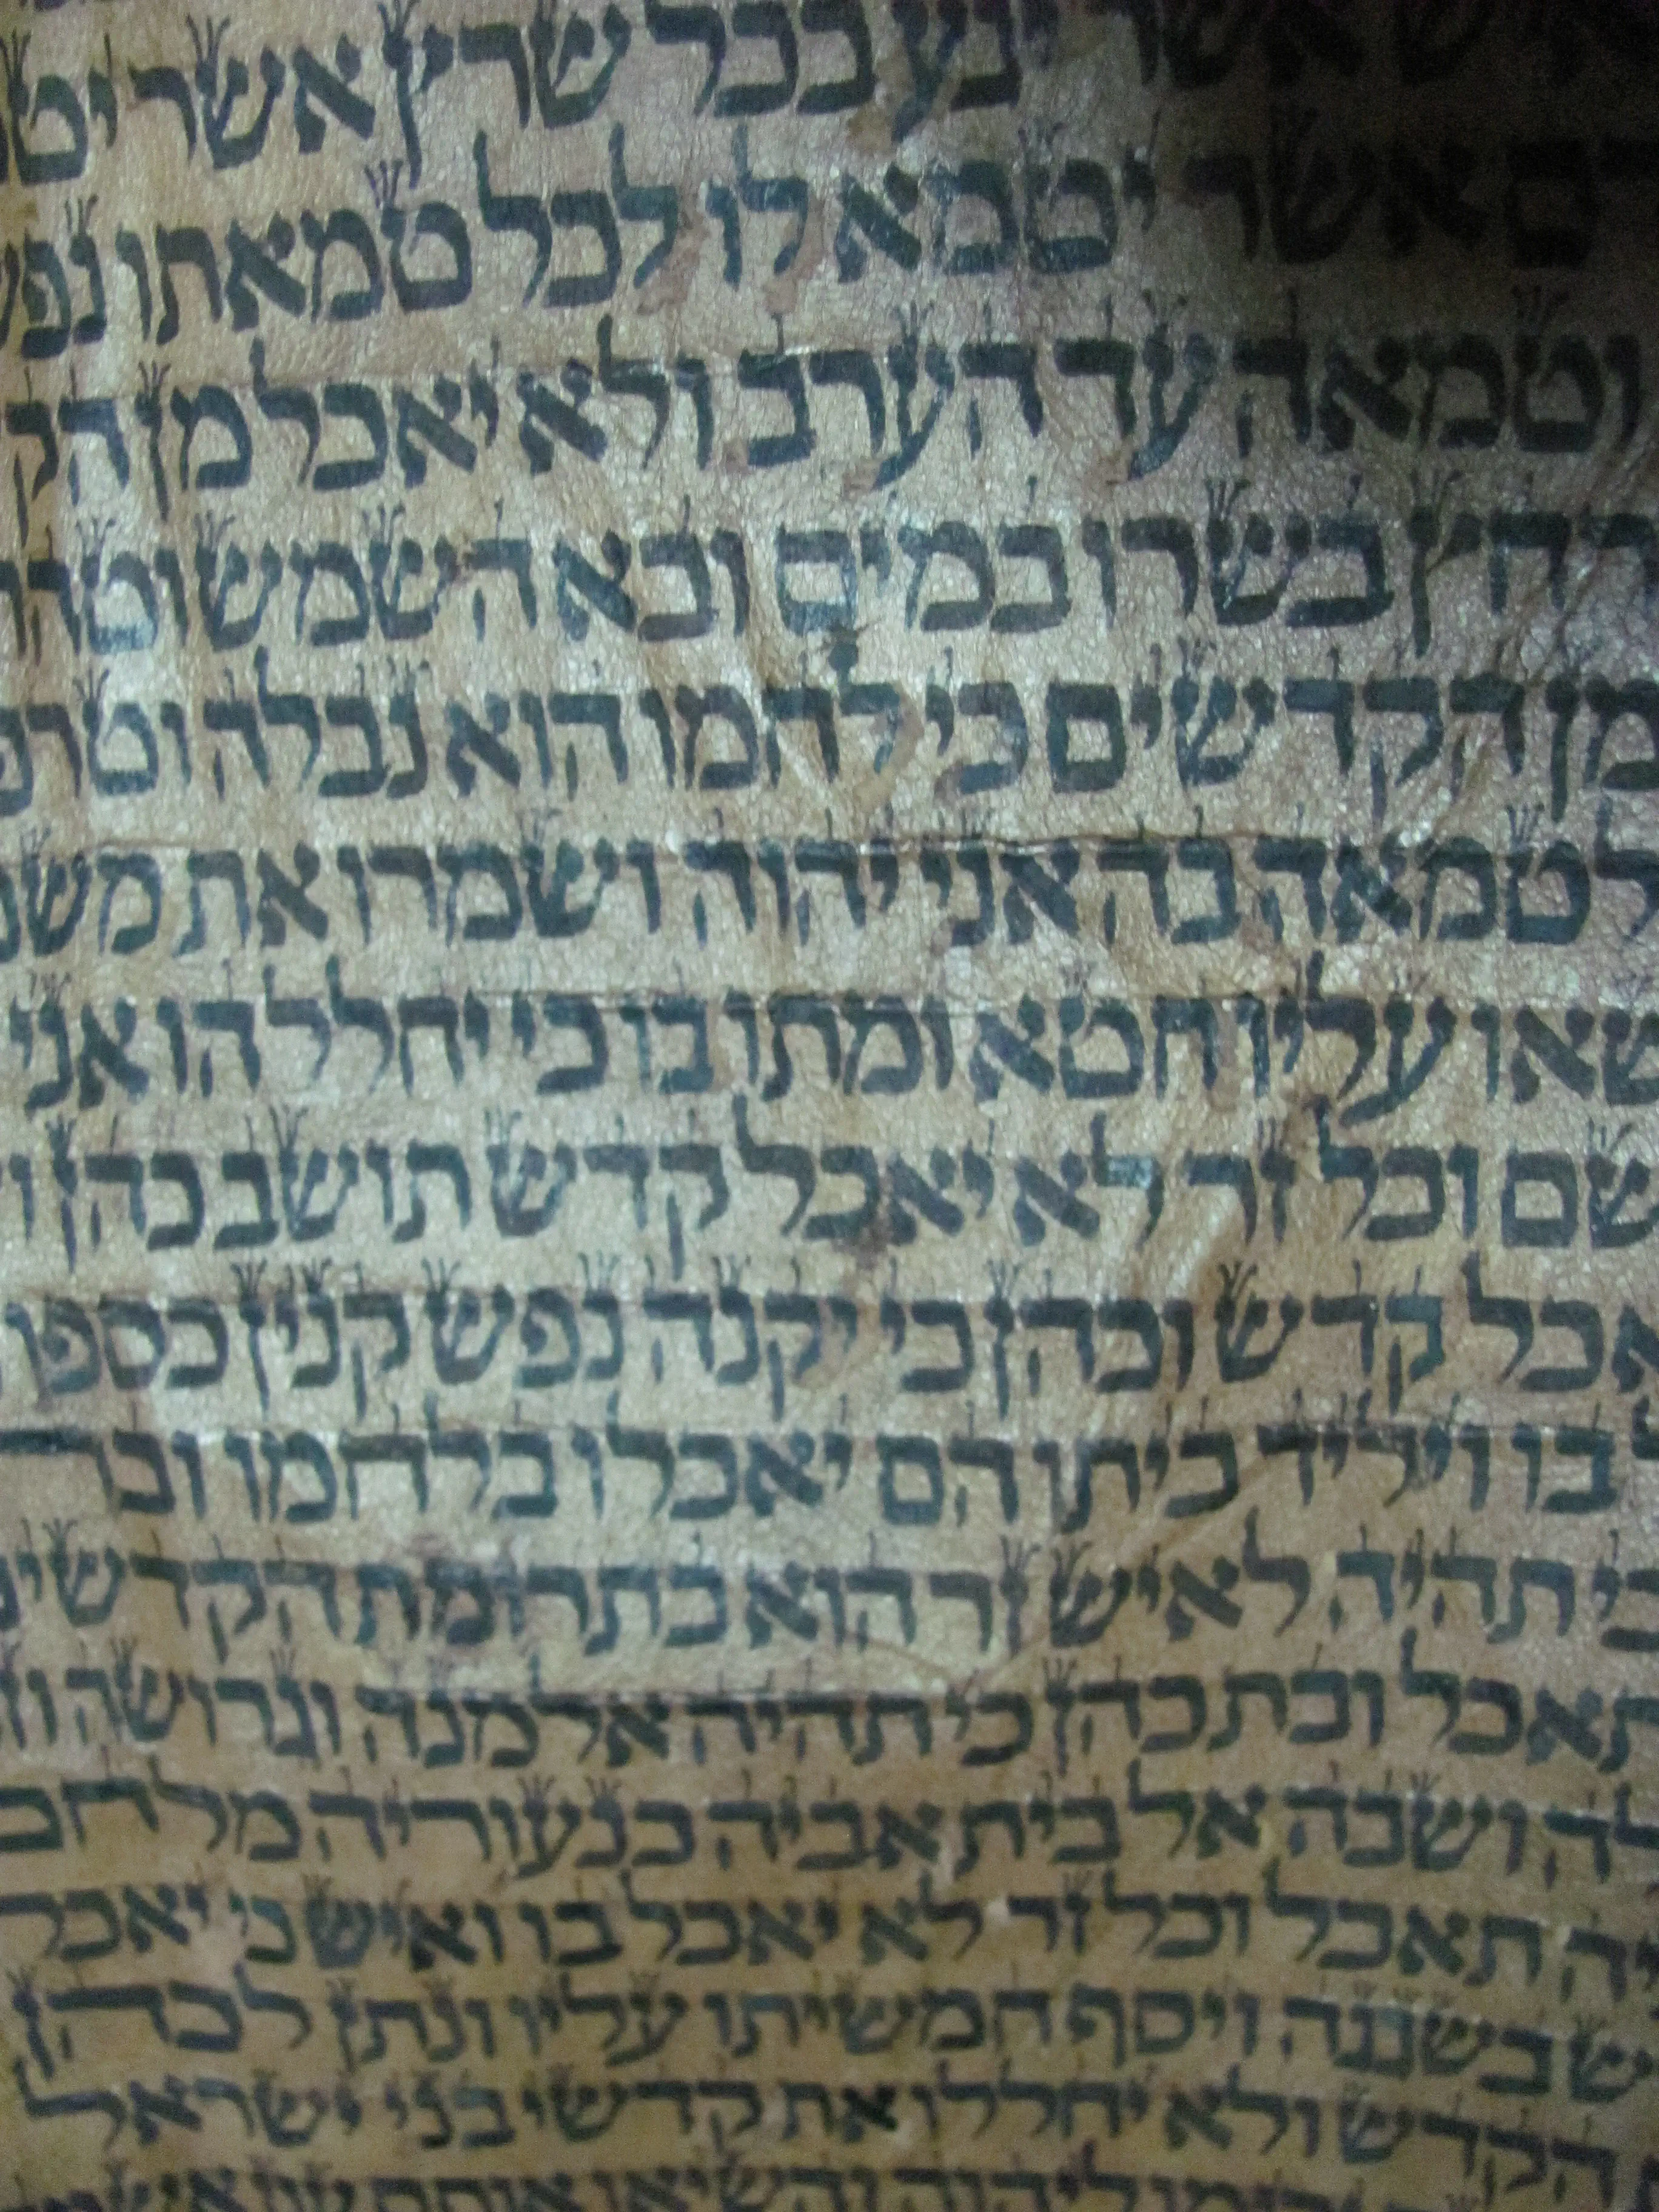 אשר יגע בכל שרץ אשר
אשר יטמא לו לכל טמאתו
וטמאה עד הערב ולא יאכל מן
רחץ בשרו במים ובא השמש
מן הקדשים כי לחמו הוא נבלה
לטמאה בה אני יהוה ושמרו את
ישאו עליו חטא ומתו בו כי יחללהו אני
וכל זר לא יאכל קדש תושב כהן
יאכל קדש וכהן כי יקנה נפש קנין כספו
בו ויליד ביתו הם יאכלו בלחמו
כי תהיה לאיש זר הוא בתרומת
תאכל ובת כהן כי תהיה אלמנה וגרושה
לה ושבה אל בית אביה כנעוריה מלחם
תאכל וכל זר לא יאכל בו ואיש כי יאכל
בשגגה ויסף חמשיתו עליו ונתן לכהן
הקדש ולא יחללו את קדשי בני ישראל
ליהוה והשיאו אותם עון